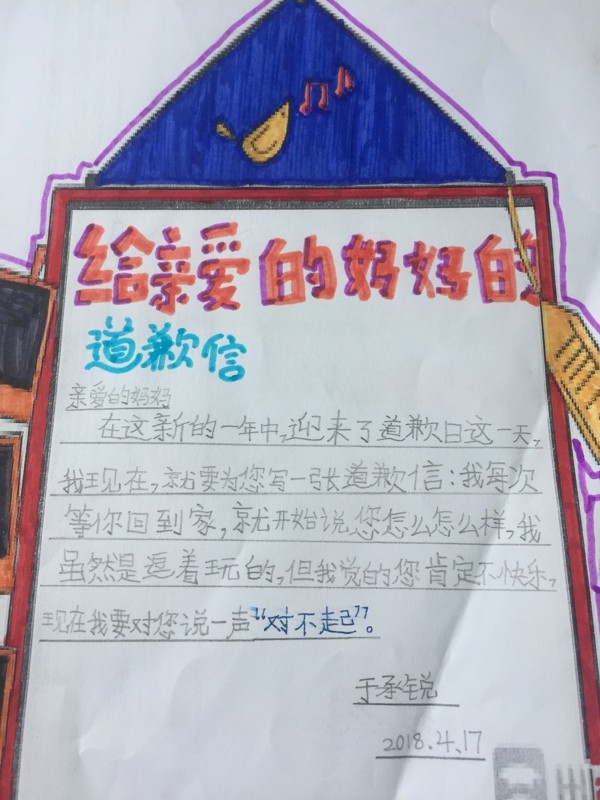 给亲爱的妈妈的
道歉信
亲爱的妈妈
在这新的一年中,迎来了道歉日这一天,
我现在,就要为您写一张道歉信:我每次
等你回到家,就开始说您怎么怎么样,我
虽然是逗着玩的,但我觉的您肯定不快乐,
现在我要对您说一声“对不起”。
于承锐
2018.4.17